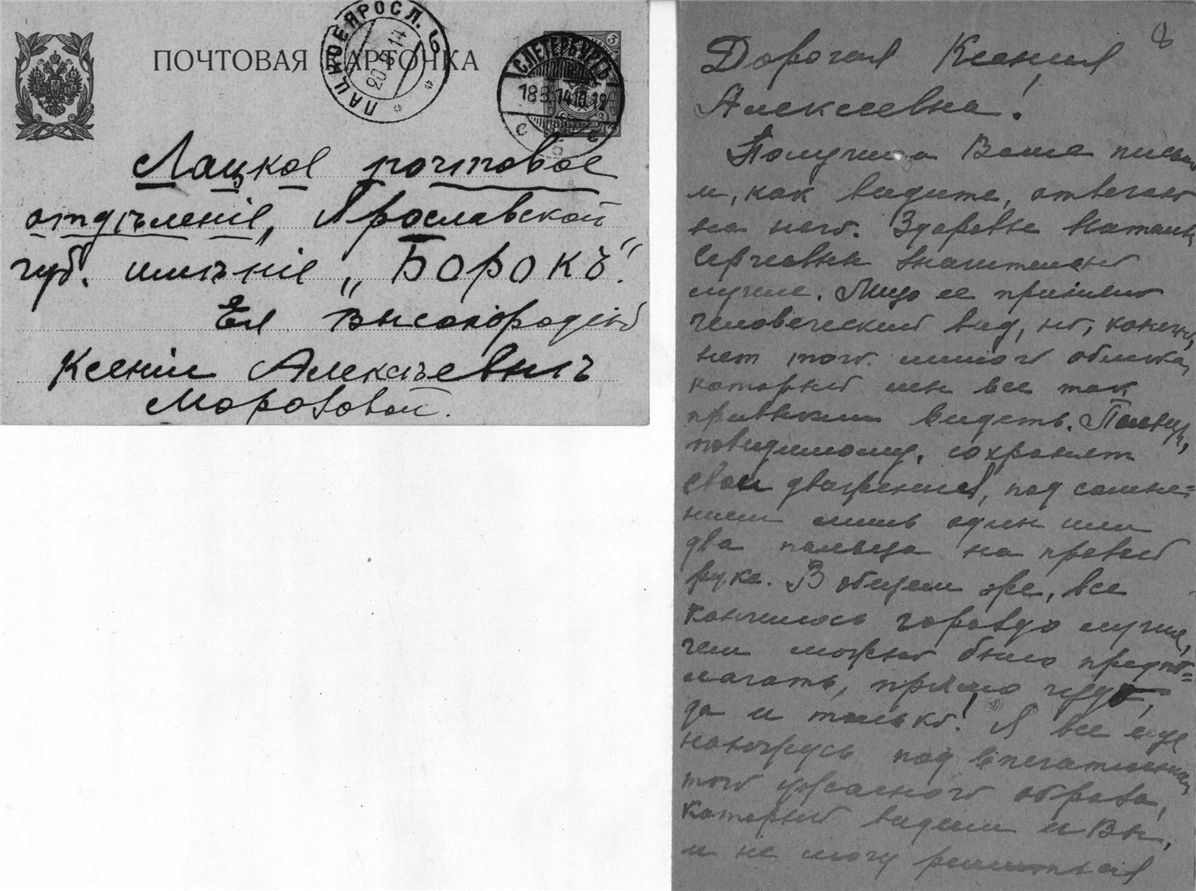 ПОЧТОВАЯ КАРТОЧКА
ЛАЦКОЕ ЯРОСЛ. Г.
20 3 14
С.ПЕТЕРБУРГЪ
18 3 14
Лацкое почтовое
отдѣленіе, Ярославской
губ. имѣніе „БОРОКЪ“.
Ея Высокородію
Ксеніи Алексѣевнѣ
Морозовой.
8
Дорогая Ксения
Алексеевна!
Получила Ваше письмо
и, как видите, отвечаю
на него. Здоровье Наталии
Сергеевны значительно
лучше. Лицо ее приняло
человеческий вид, но, конечно,
нет того милого облика,
который мы все так
привыкли видеть. Пальцы,
повидимому, сохранят
свои движения, под сомне=
нием лишь один или
два пальца на правой
руке. В общем же, все
кончилось гораздо лучше,
чем можно было предпо=
лагать, прямо чудо,
да и только! Я все еще
нахожусь под впечатлением
того ужасного образа,
который видели и Вы,
и не могу решиться